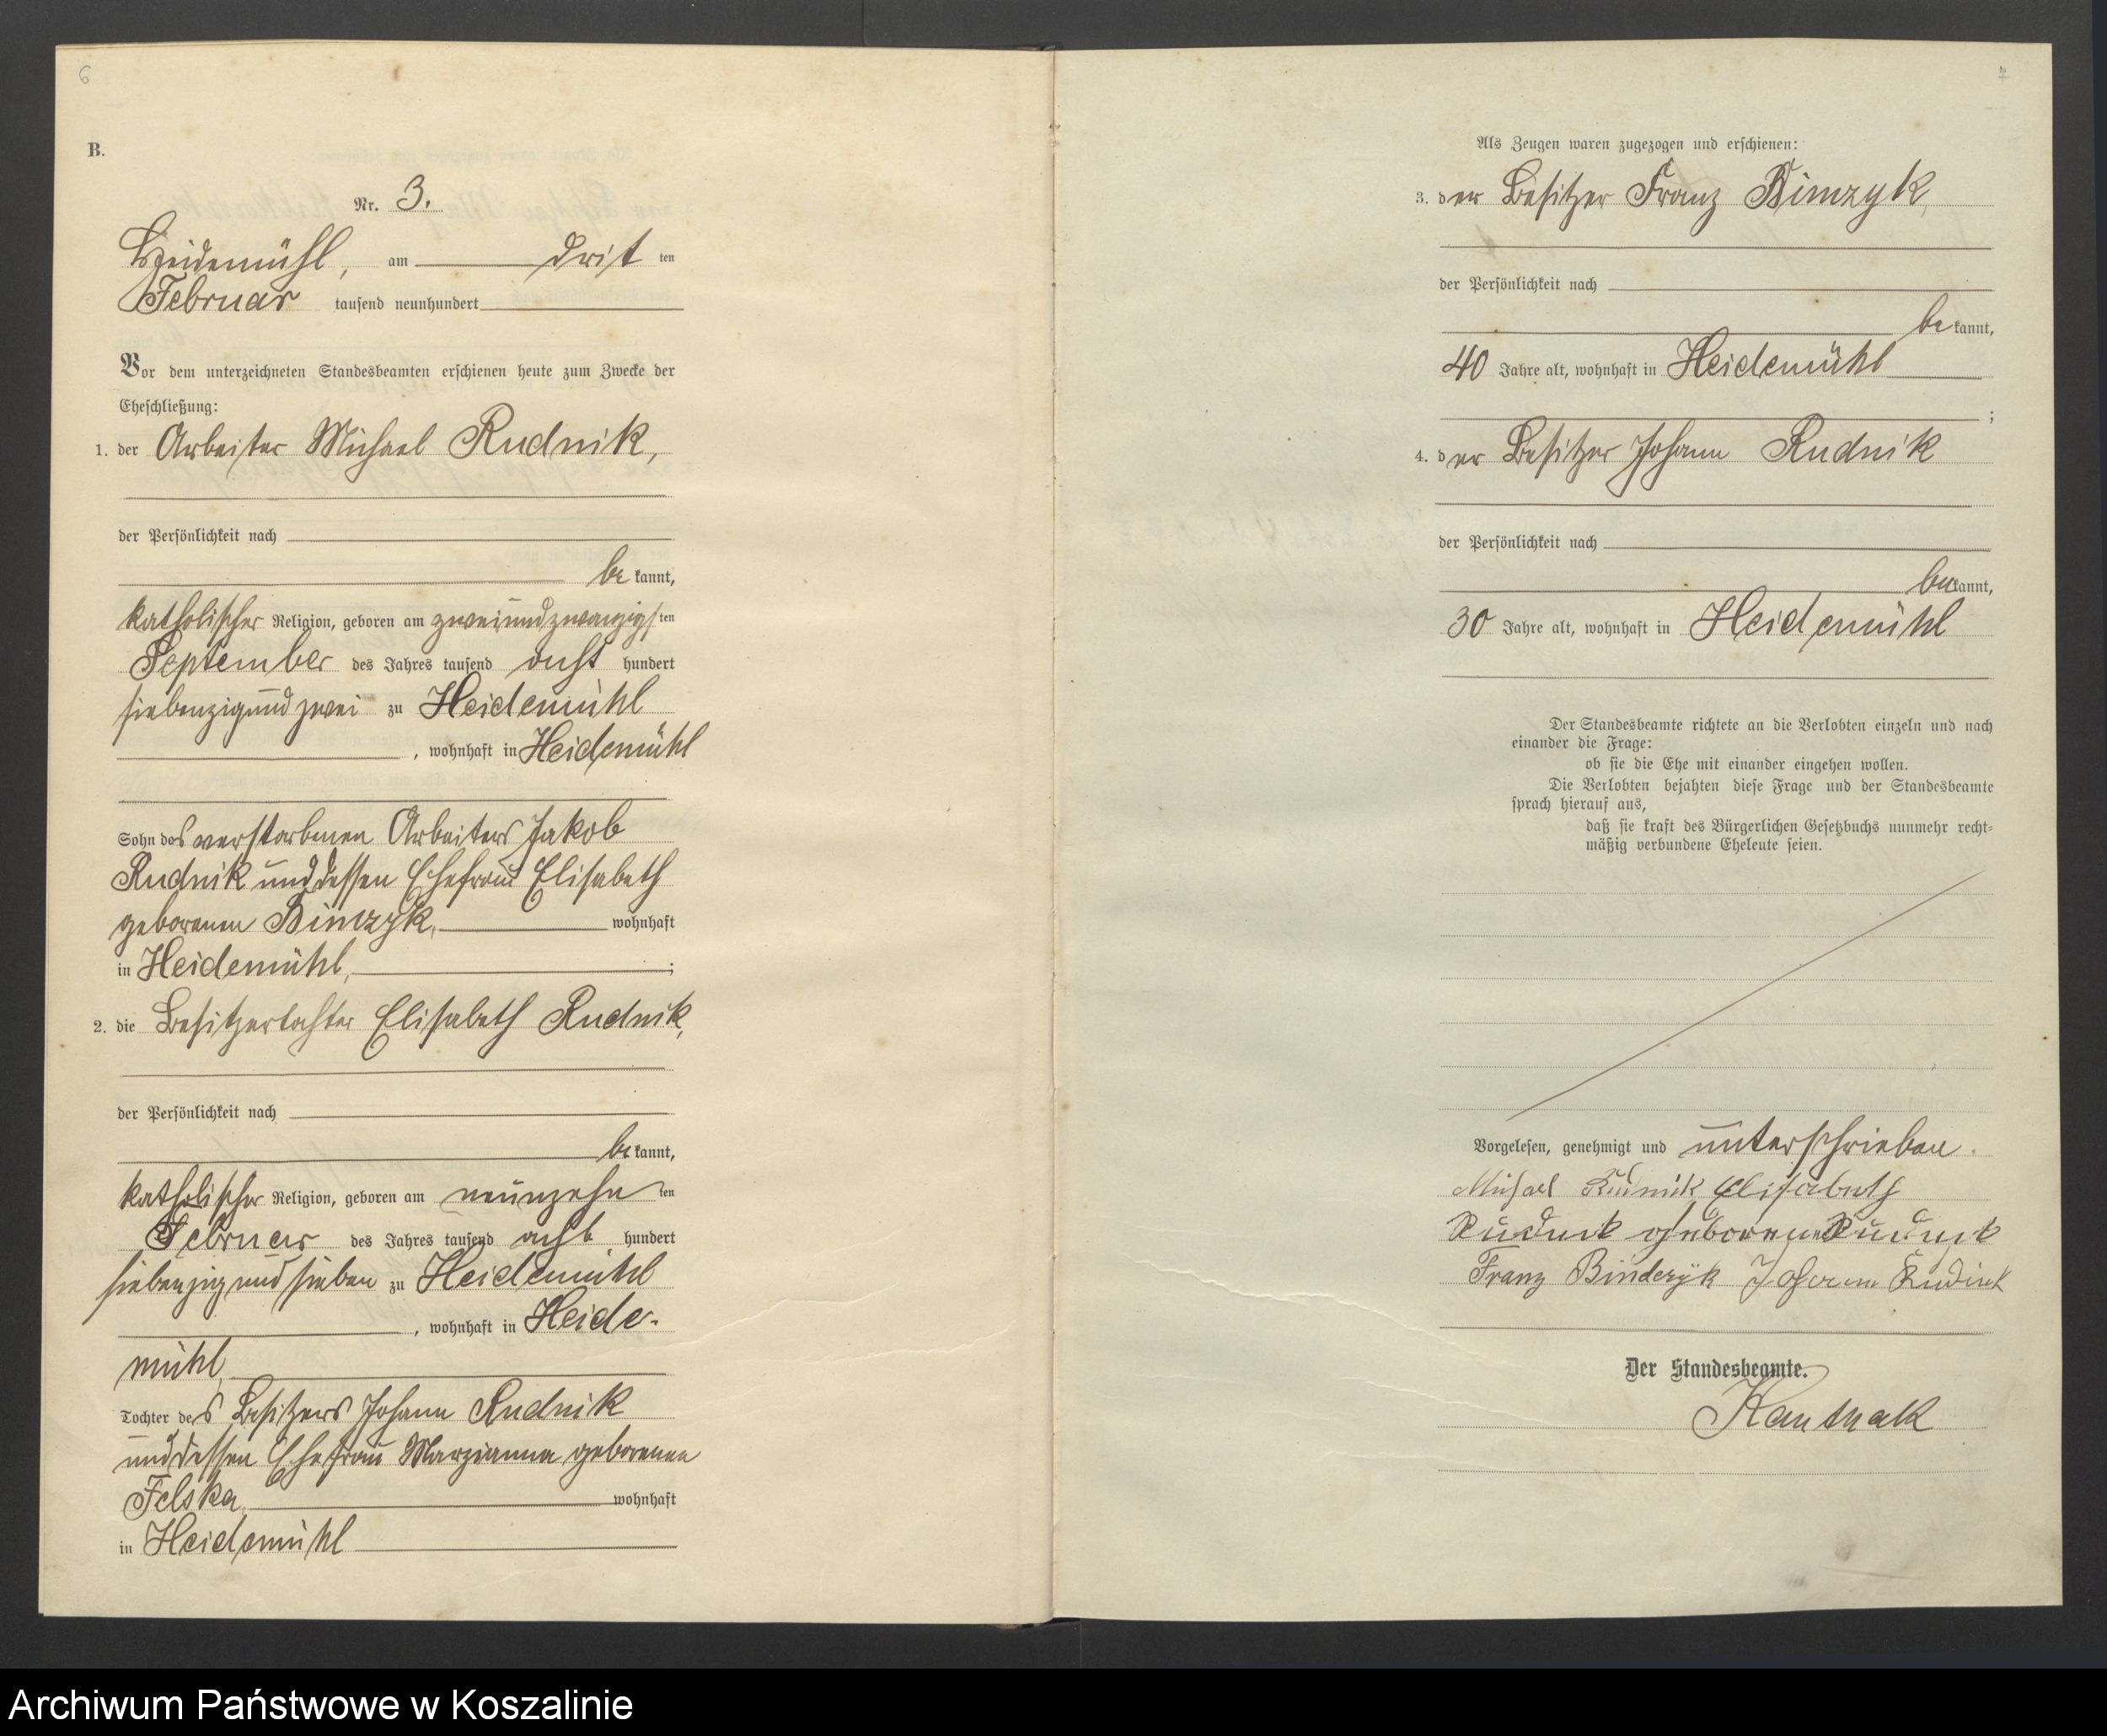 6
B.
Nr. 3.
Heidemühl, am drit ten
Februar tausend neunhundert
Vor dem unterzeichneten Standesbeamten erschienen heute zum Zwecke der
Eheschließung:
1. der Arbeiter Michael Rudnik,
der Persönlichkeit nach
be kannt,
katholischer Religion, geboren am zweiundzwanzigsten
September des Jahres tausend acht hundert
siebenzigundzwei zu Heidemühl
, wohnhaft in Heidemühl
Sohn des verstorbenen Arbeiters Jakob
Rudnik und dessen Ehefrau Elisabeth
geborenen Binczyk, wohnhaft
in Heidemühl, ;
2. die Besitzertochter Elisabeth Rudnik,
der Persönlichkeit nach
be kannt,
katholischer Religion, geboren am neunzehn ten
Februar des Jahres tausend acht hundert
siebenzigundsieben zu Heidemühl
, wohnhaft in Heide-
mühl,
Tochter des Besitzers Johann Rudnik
und dessen Ehefrau Marzianna geborenen
Felska, wohnhaft
in Heidemühl
7
Als Zeugen waren zugezogen und erschienen:
3. der Besitzer Franz Binczyk,
der Persönlichkeit nach
be kannt,
40 Jahre alt, wohnhaft in Heidemühl
;
4. der Besitzer Johann Rudnik
der Persönlichkeit nach
bekannt,
30 Jahre alt, wohnhaft in Heidemühl
Der Standesbeamte richtete an die Verlobten einzeln und nach
einander die Frage:
ob sie die Ehe mit einander eingehen wollen.
Die Verlobten bejahten diese Frage und der Standesbeamte
sprach hierauf aus,
daß sie kraft des Bürgerlichen Gesetzbuchs nunmehr recht=
mäßig verbundene Eheleute seien.
Vorgelesen, genehmigt und unterschrieben.
Michael Rudnik Elisabeth
Rudnik geborene Rudnik
Franz Binderyk Johann Rudink
Der Standesbeamte.
Kanthak
Archiwum Państwowe w Koszalinie